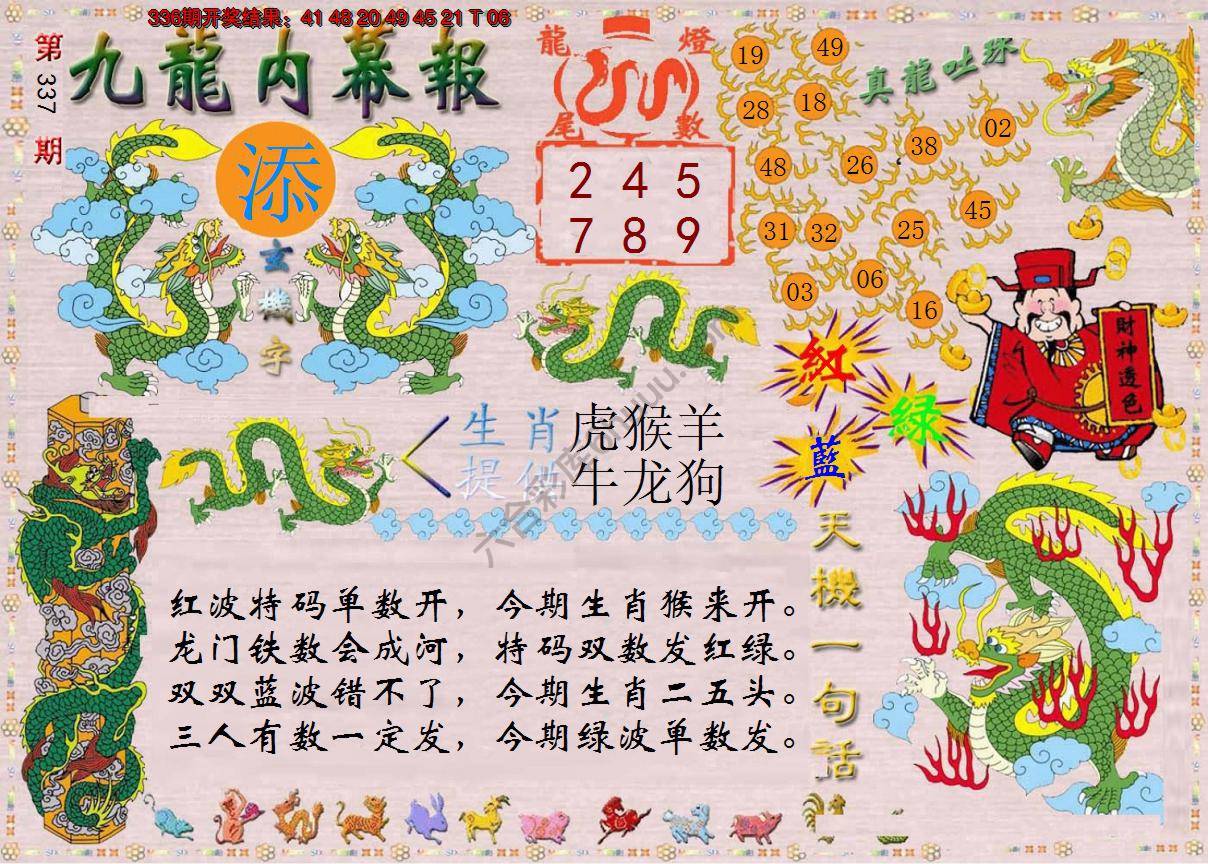 336期开奖结果：41 48 20 49 45 21 T 06
第
337
期
九龍内幕報
添
玄
機
字
龍 燈
尾 數
2 4 5
7 8 9
真龍吐珠
19
49
28
18
48
26
38
02
31
32
25
45
03
06
16
紅
绿
藍
財神透色
生肖
提供
虎猴羊
牛龙狗
红波特码单数开，今期生肖猴来开。
龙门铁数会成河，特码双数发红绿。
双双蓝波错不了，今期生肖二五头。
三人有数一定发，今期绿波单数发。
天機一句話